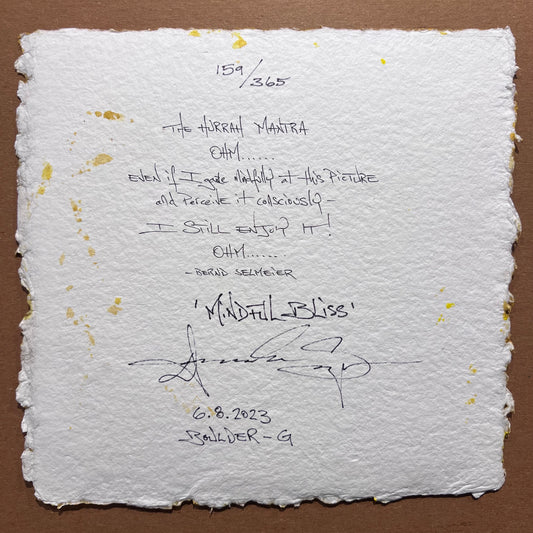 159/365
THE HURRAH MANTRA
OHM......
EVEN if I gaze mindfully at this PICTURE
and Perceive it consciously –
I STILL ENJOY IT!
OHM......
– BERND SELMEIER
'MINDFUL BLISS'
6.8.2023
BOULDER – G